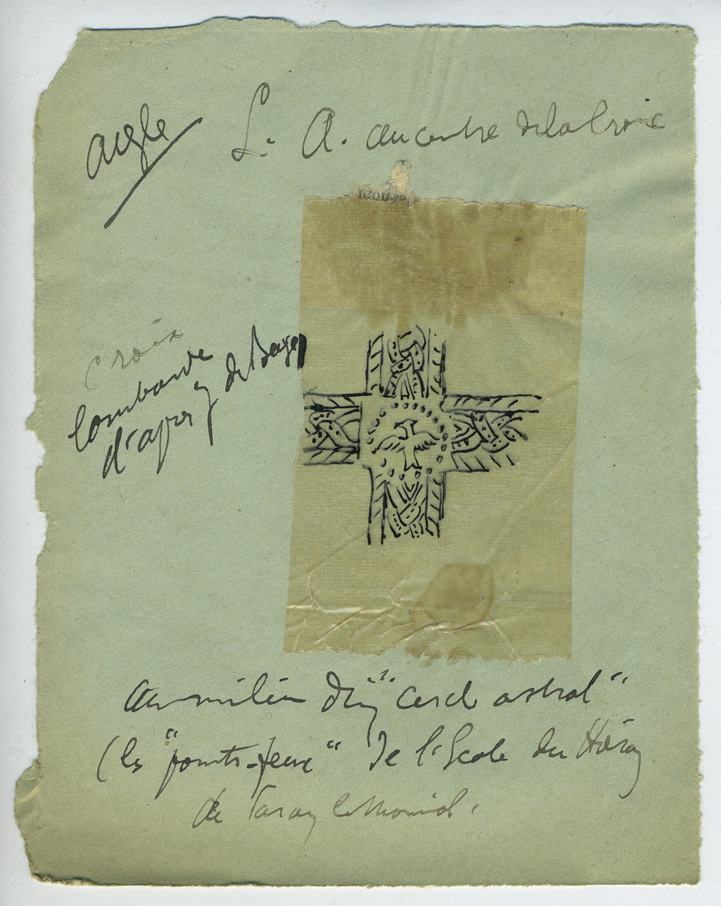 aigle
L. A. au centre de la Croix
croix
lombarde
d'après de Baye
Au milieu d'un "cercle astral"
(les "points-feux" de l'Ecole du Hiéron
de Paray le Monial.